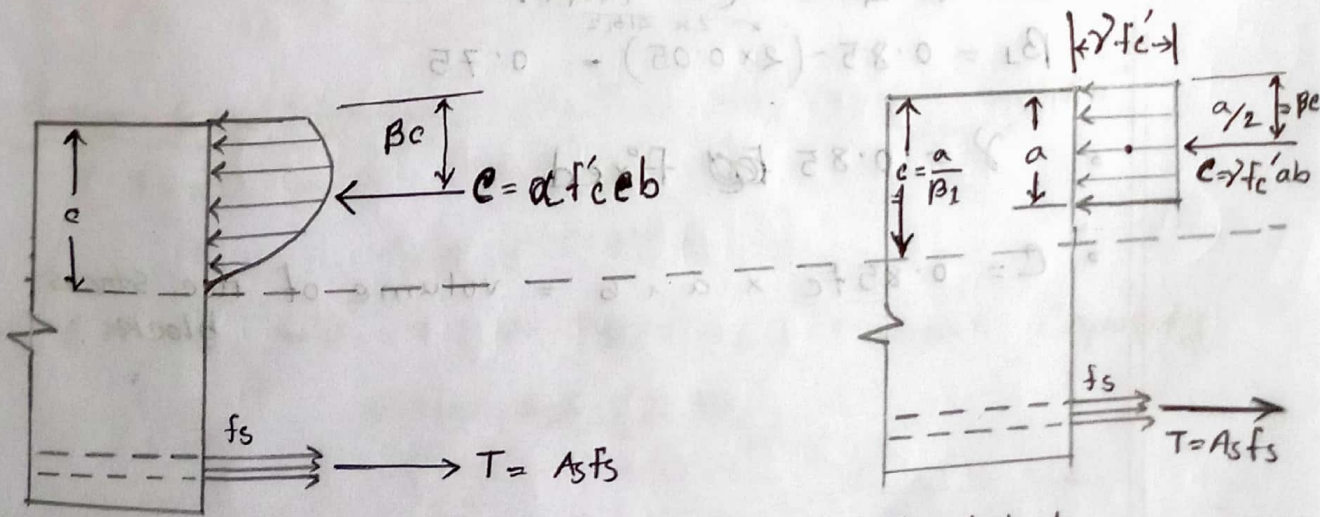 c
βc
C = αf'c cb
fs
T = Asfs
γf'c
c = a/β1
a
a/2 = βc
C = γf'c ab
fs
T = Asfs